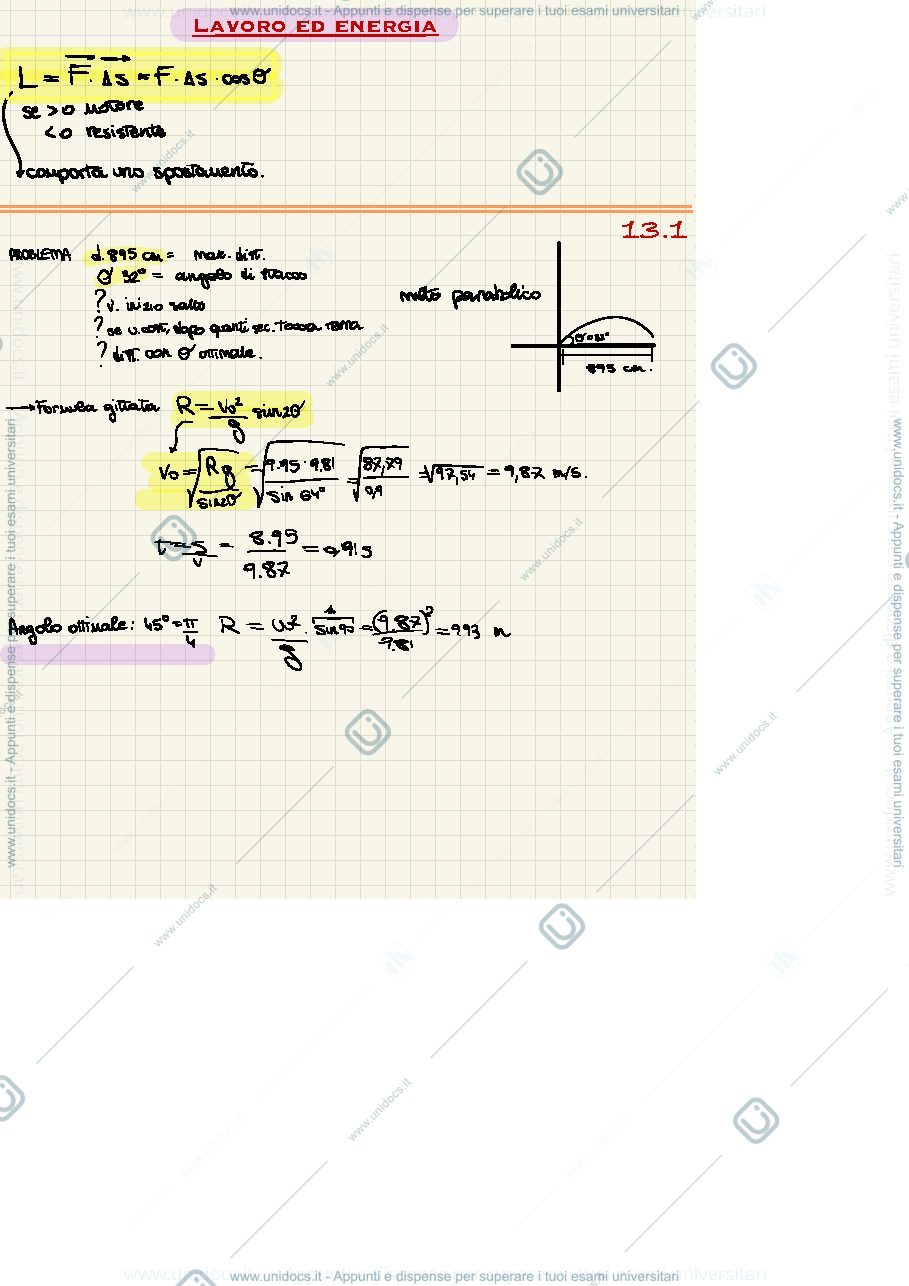 www.unidocs.it - Appunti e dispense per superare i tuoi esami universitari
LAVORO ED ENERGIA
L = F · Δs = F · Δs · cosθ
se > 0 motore
< 0 resistente
comporta uno spostamento.
13.1
PROBLEMA d. 895 cm = max. dist.
θ 32° = angolo di stacco
? v. inizio salto
? se v. cost, dopo quanti sec. tocca terra
? dist. con θ ottimale.
moto parabolico
θ=32°
895 cm.
→ Formula gittata R = v₀²/g sin2θ
v₀ = √(Rg/sin2θ) = √(8.95 · 9.81/sin 64°) = √(87,79/0,9) = √97,54 = 9,87 m/s.
t = s/v = 8.95/9.87 = 0,91 s
Angolo ottimale: 45° = π/4 R = v₀²/g · sin90 = (9.87)²/9.81 = 9.93 m
www.unidocs.it - Appunti e dispense per superare i tuoi esami universitari
www.unidocs.it - Appunti e dispense per superare i tuoi esami universitari
www.unidocs.it
www.unidocs.it
www.unidocs.it
www.unidocs.it
www.unidocs.it
www.unidocs.it - Appunti e dispense per superare i tuoi esami universitari